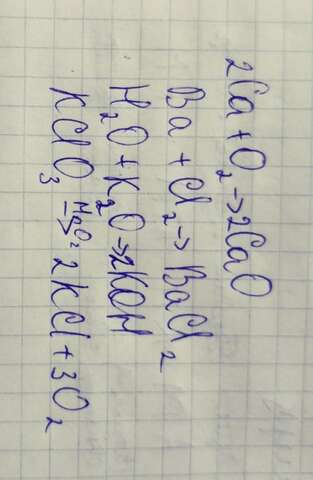 2Ca + O₂ → 2CaO
Ba + Cl₂ → BaCl₂
H₂O + K₂O → 2KOH
KClO₃ →MnO₂ 2KCl + 3O₂